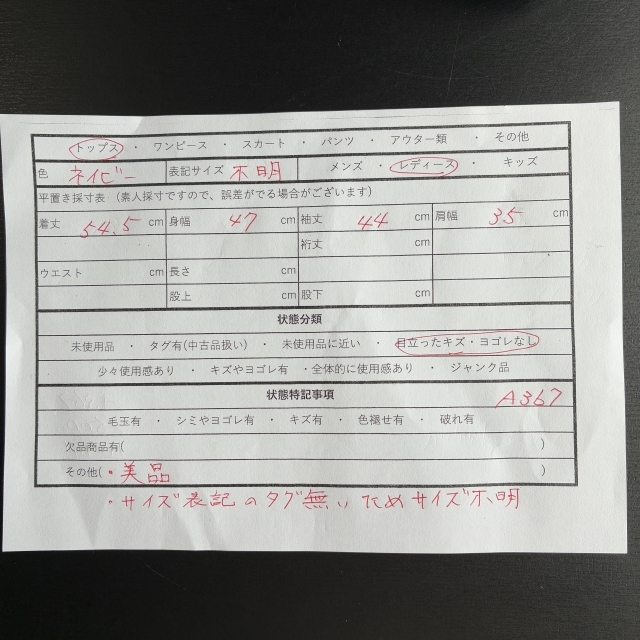 トップス ・ ワンピース ・ スカート ・ パンツ ・ アウター類 ・ その他
色 ネイビー 表記サイズ 不明 メンズ ・ レディース ・ キッズ
平置き採寸表 (素人採寸ですので、誤差がでる場合がございます)
着丈 54.5 cm 身幅 47 cm 袖丈 44 cm 肩幅 35 cm
裄丈 cm
ウエスト cm 長さ cm
股上 cm 股下 cm
状態分類
未使用品 ・ タグ有(中古品扱い) ・ 未使用品に近い ・ 目立ったキズ・ヨゴレなし
少々使用感あり ・ キズやヨゴレ有 ・全体的に使用感あり ・ ジャンク品
状態特記事項 A367
毛玉有 ・ シミやヨゴレ有 ・ キズ有 ・ 色褪せ有 ・ 破れ有
欠品商品有( )
その他(・美品 )
・サイズ表記のタグ無いためサイズ不明